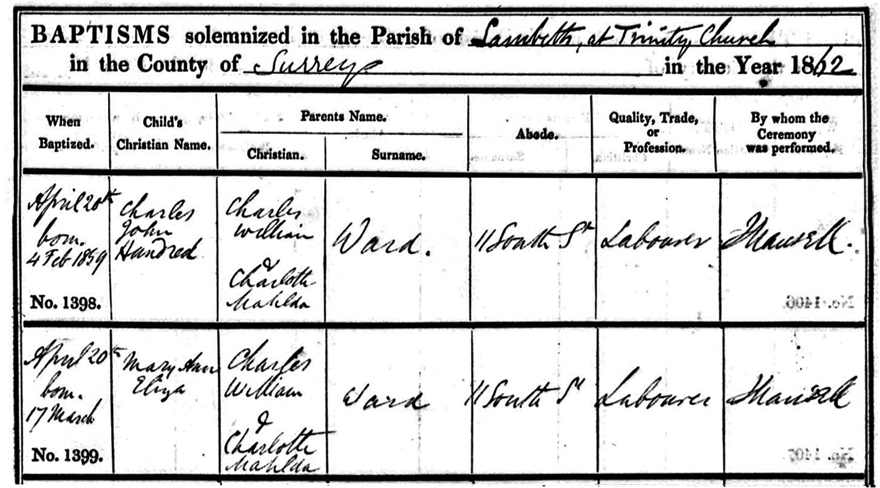 BAPTISMS solemnized in the Parish of Lambeth, at Trinity Church
in the County of Surrey in the Year 1862
When Baptized.
Child's Christian Name.
Parents Name.
Christian.
Surname.
Abode.
Quality, Trade, or Profession.
By whom the Ceremony was performed.
April 20th
born
4 Feb 1859
No. 1398.
Charles
John
Handred
Charles
William
&
Charlotte
Matilda
Ward.
11 South St
Labourer
No. 1406
April 20th
born
17 March
No. 1399.
Mary Ann
Eliza
Charles
William
&
Charlotte
Matilda
Ward
11 South St
Labourer
No. 1407